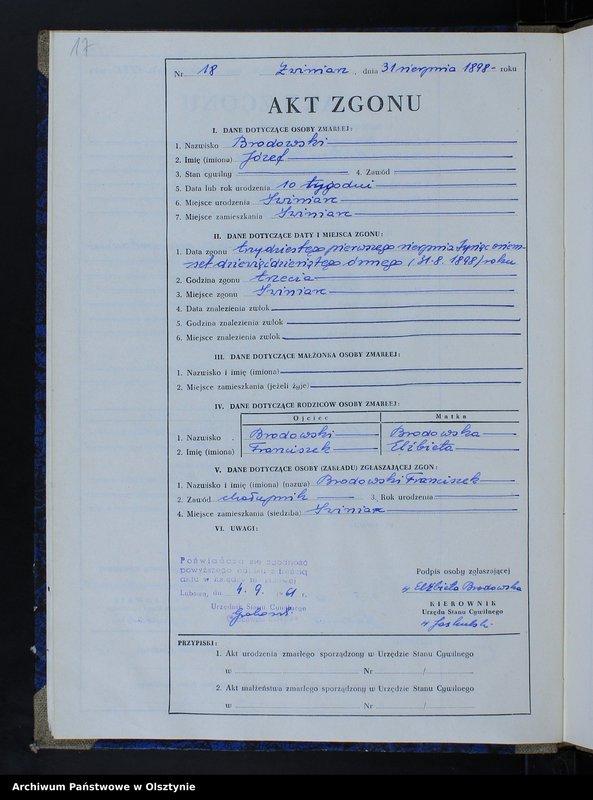 17
Nr 18 Zwiniarz, dnia 31 sierpnia 1898- roku
AKT ZGONU
I. DANE DOTYCZĄCE OSOBY ZMARŁEJ:
1. Nazwisko Brodowski
2. Imię (imiona) Józef
3. Stan cywilny 4. Zawód
5. Data lub rok urodzenia 10 tygodni
6. Miejsce urodzenia
7. Miejsce zamieszkania
II. DANE DOTYCZĄCE DATY I MIEJSCA ZGONU:
1. Data zgonu trzydziestego pierwszego sierpnia tysiąc osiem-
set dziewięćdziesiątego ósmego (31.8.1898) roku
2. Godzina zgonu trzecia
3. Miejsce zgonu
4. Data znalezienia zwłok
5. Godzina znalezienia zwłok
6. Miejsce znalezienia zwłok
III. DANE DOTYCZĄCE MAŁŻONKA OSOBY ZMARŁEJ:
1. Nazwisko i imię (imiona)
2. Miejsce zamieszkania (jeżeli żyje)
IV. DANE DOTYCZĄCE RODZICÓW OSOBY ZMARŁEJ:
Ojciec Matka
1. Nazwisko . Brodowski Brodowska
2. Imię (imiona) Franciszek Elżbieta
V. DANE DOTYCZĄCE OSOBY (ZAKŁADU) ZGŁASZAJĄCEJ ZGON:
1. Nazwisko i imię (imiona) (nazwa) Brodowski Franciszek
2. Zawód chałupnik 3. Rok urodzenia
4. Miejsce zamieszkania (siedziba)
VI. UWAGI:
Poświadcza się zgodność
powyższego odpisu z treścią
aktu w księdze
Lubawa, dn. 4. 9. 1961 r.
Urzędnik Stanu Cywilnego
Podpis osoby zgłaszającej
Elżbieta Brodowska
KIEROWNIK
Urzędu Stanu Cywilnego
PRZYPISKI:
1. Akt urodzenia zmarłego sporządzony w Urzędzie Stanu Cywilnego
w Nr /
2. Akt małżeństwa zmarłego sporządzony w Urzędzie Stanu Cywilnego
w Nr /
Archiwum Państwowe w Olsztynie